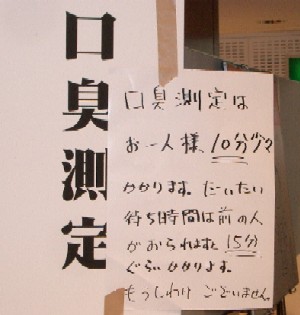 口臭測定
口臭測定は
お一人様、10分少々
かかります。だいたい
待ち時間は前の人
がおられますと15分
ぐらいかかります。
もうしわけございません。